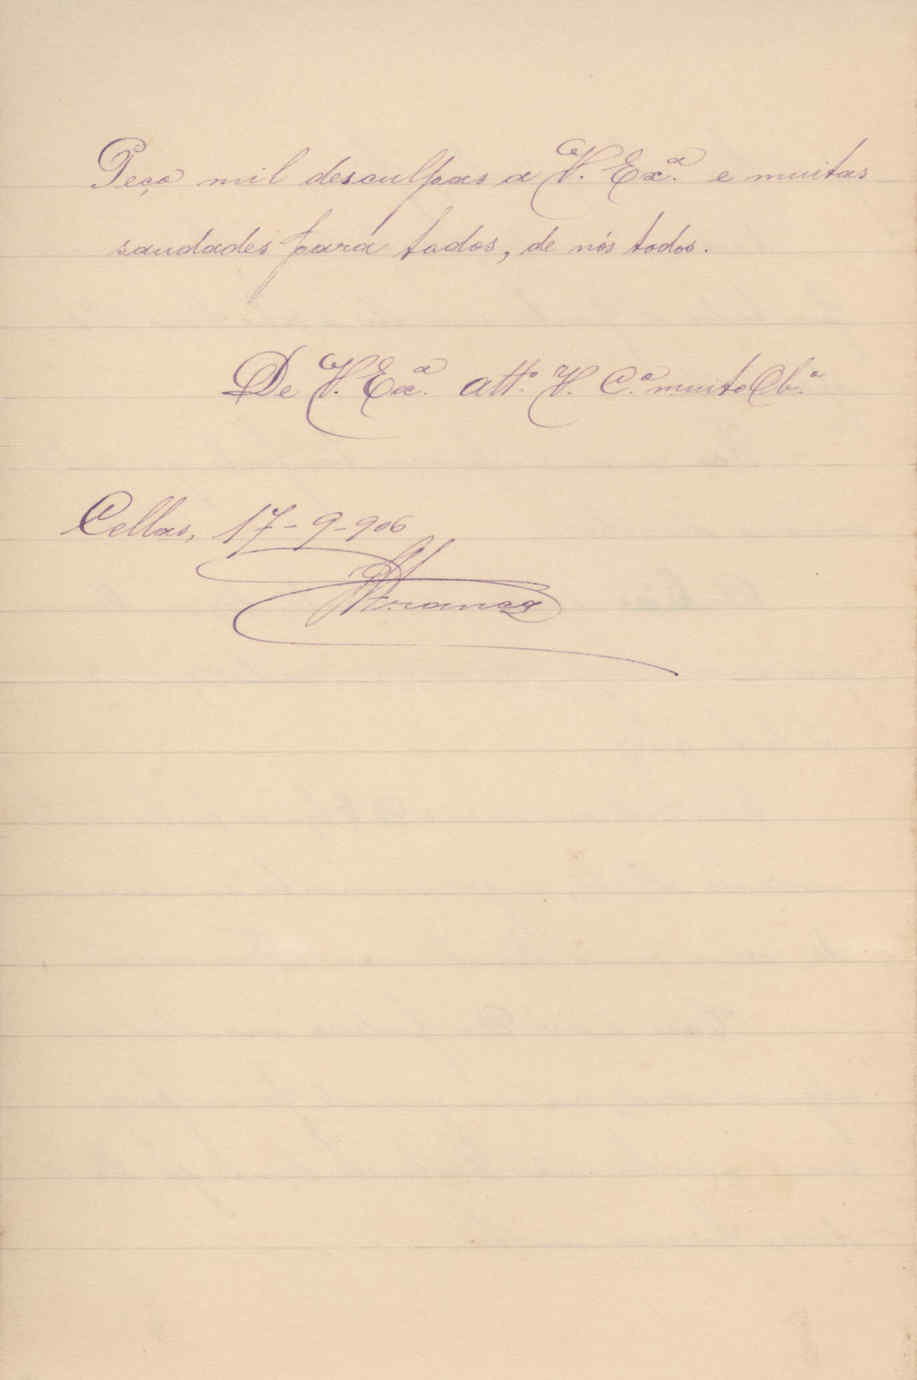 Peço mil desculpas a V. Ex.ª e muitas
saudades para todos, de nós todos.
De V. Ex.ª att.º V. C.º muito Ob.º
Cellas, 17-9-906